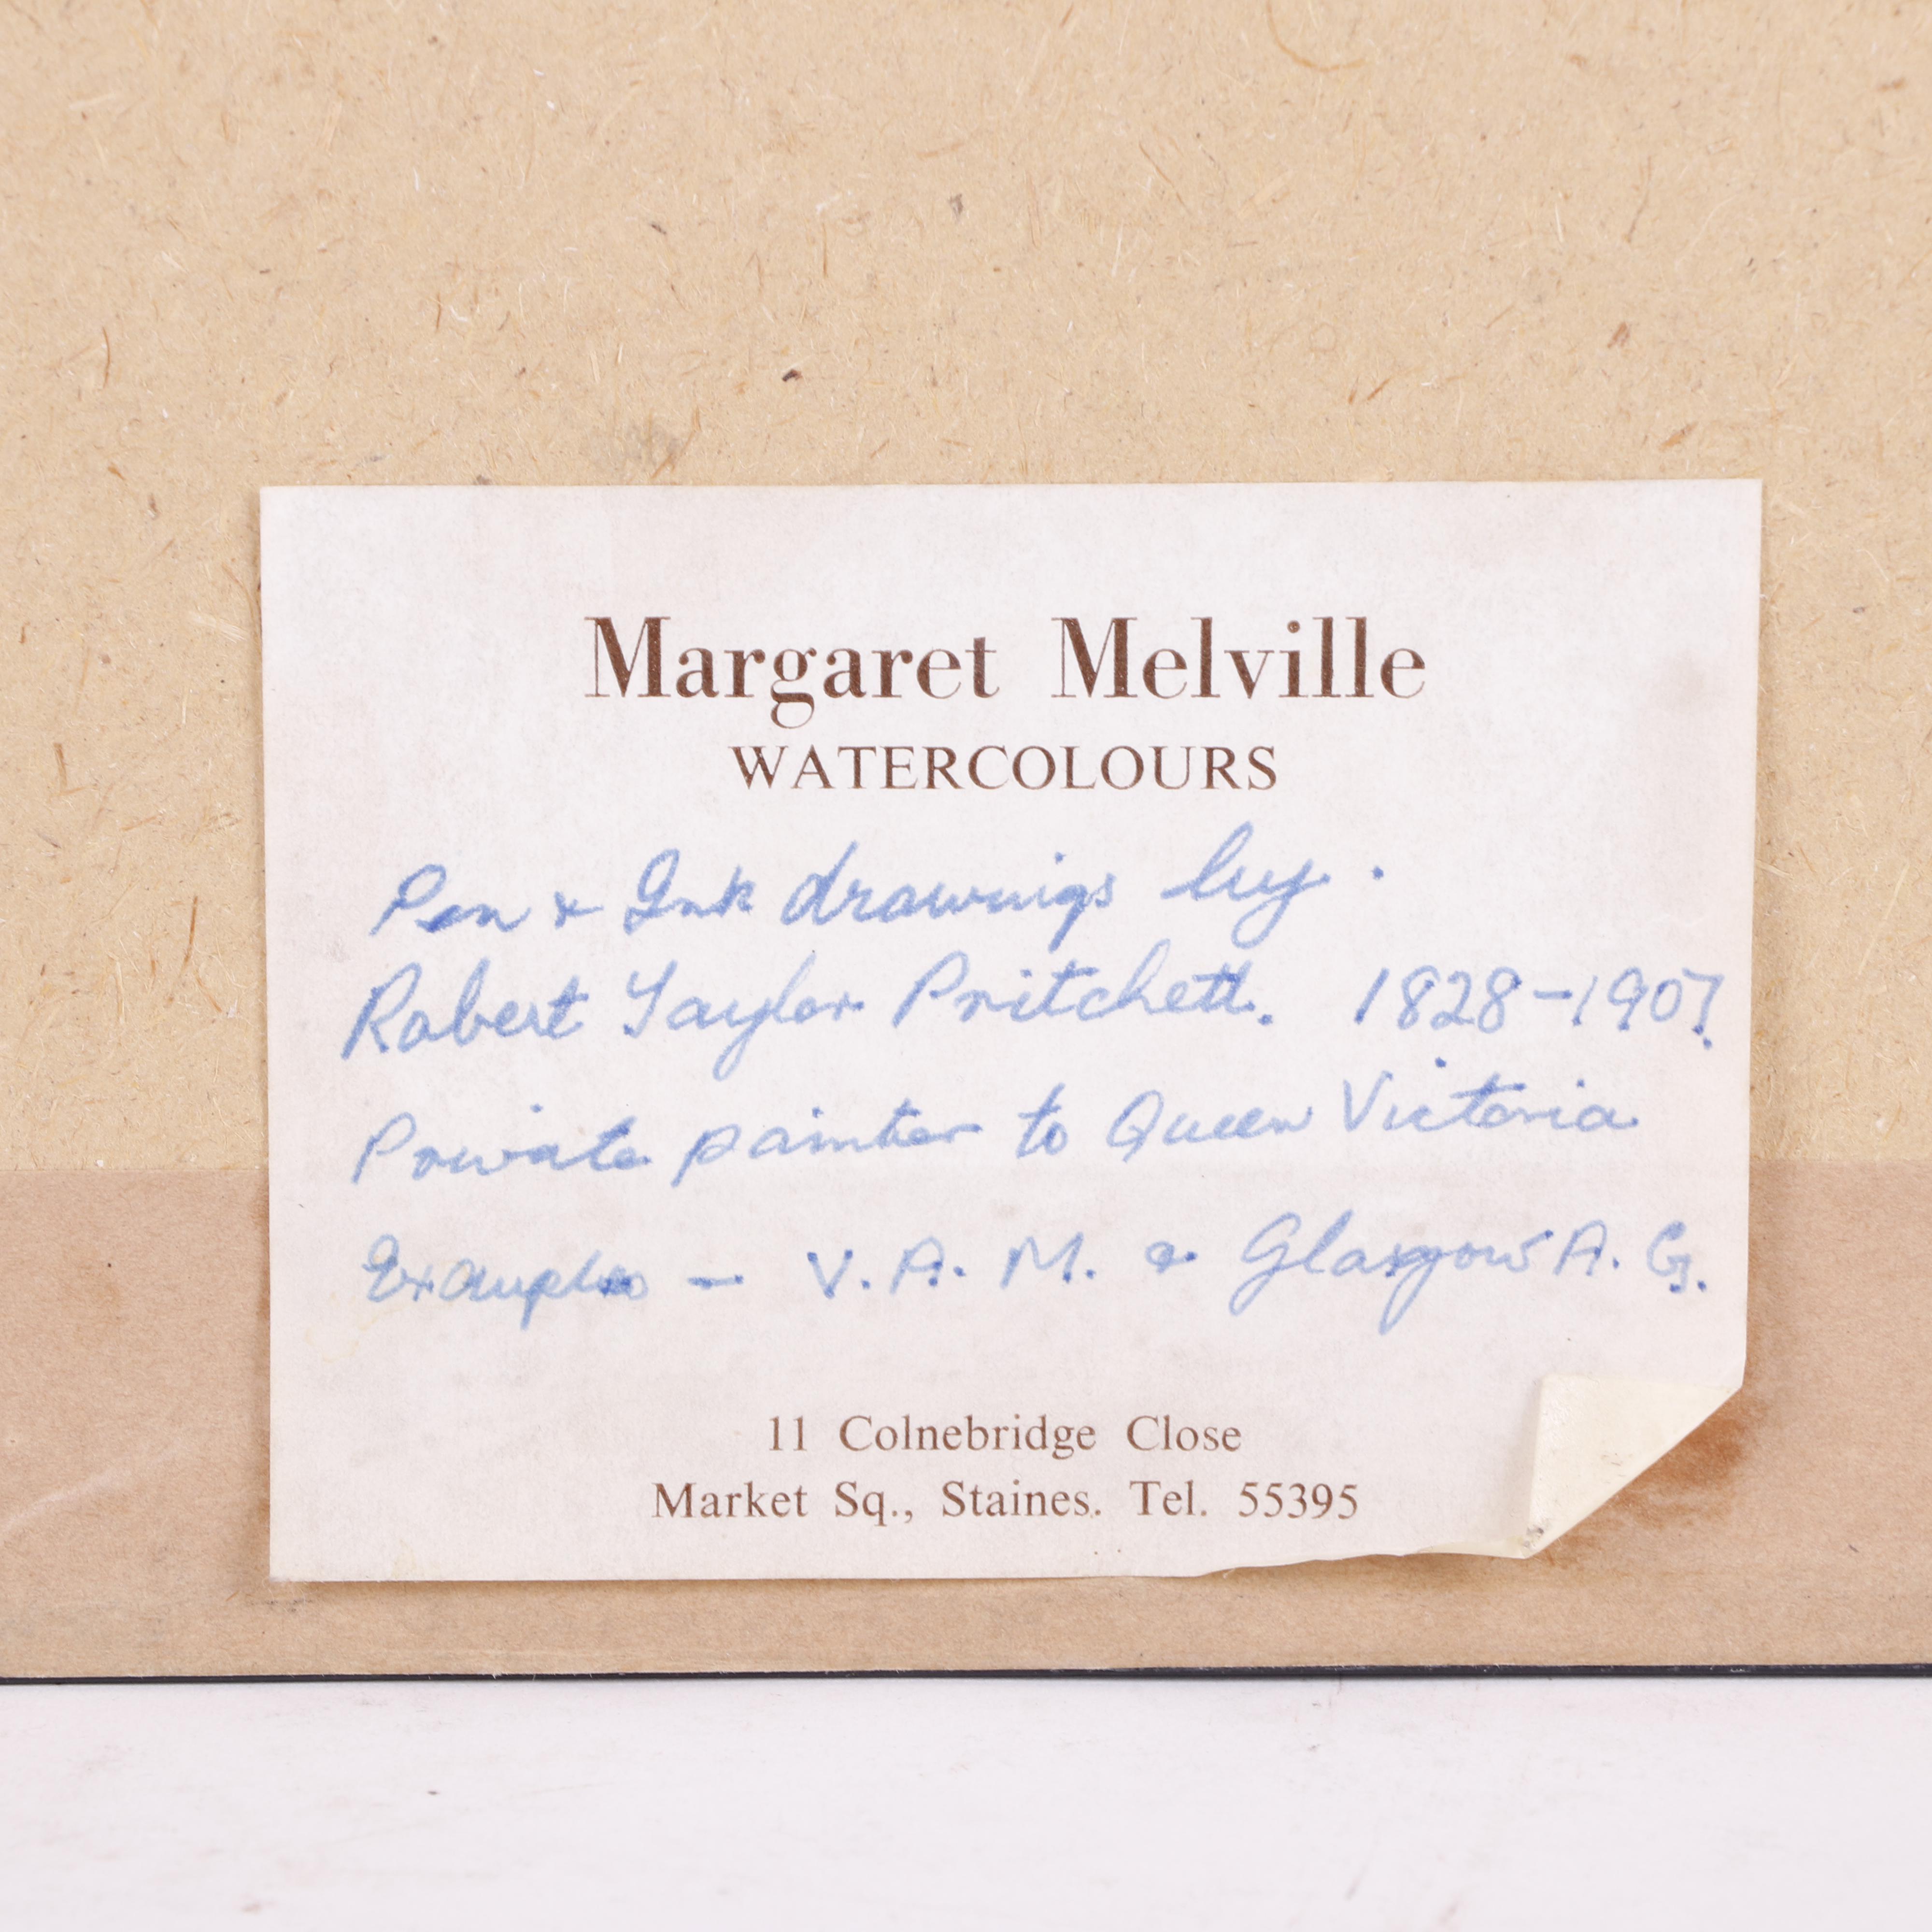 Margaret Melville
WATERCOLOURS
Pen & Ink drawings by.
Robert Taylor Pritchett. 1828-1907.
Private painter to Queen Victoria
Examples - V.A.M. & Glasgow A.G.
11 Colnebridge Close
Market Sq., Staines. Tel. 55395